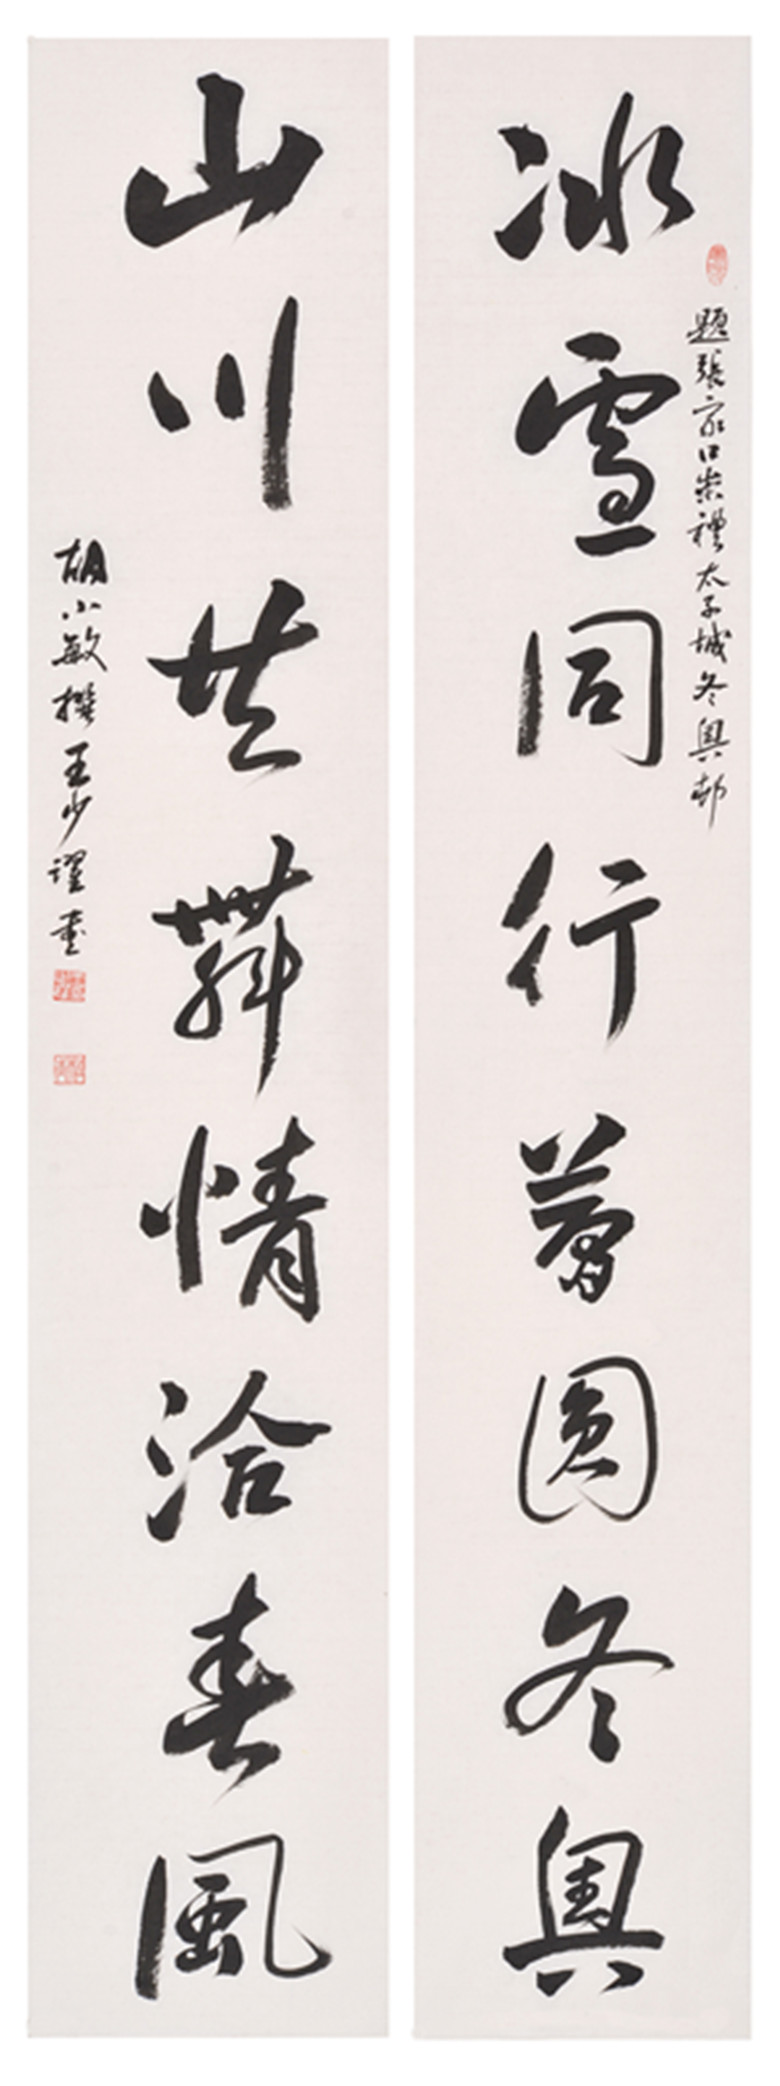 冰雪同行夢圓冬奧
題張家口崇禮太子城冬奧村
山川共舞情洽春風
胡小敏撰王少谨書